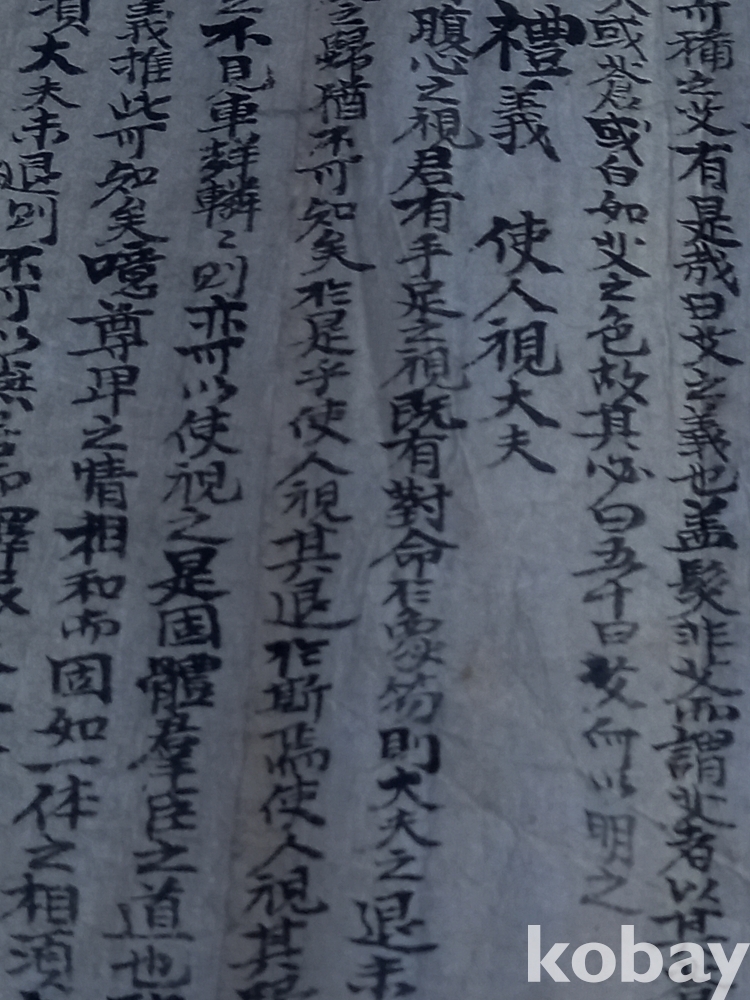 可稱之艾有是哉曰艾之義也盖髮非艾而謂艾者以其
或蒼或白如艾之色故其必曰五十曰艾所以明之
禮義 使人視大夫
腹心之視君有手足之視旣有對命於象笏則大夫之退未
之歸猶不可知矣於是乎使人視其退於斯焉使人視其歸
之不見車轔轔〻則亦可以使視之是固體羣臣之道也
義推此可知矣噫尊卑之情相和而固如一体之相須
須大夫未退則不可以
kobay